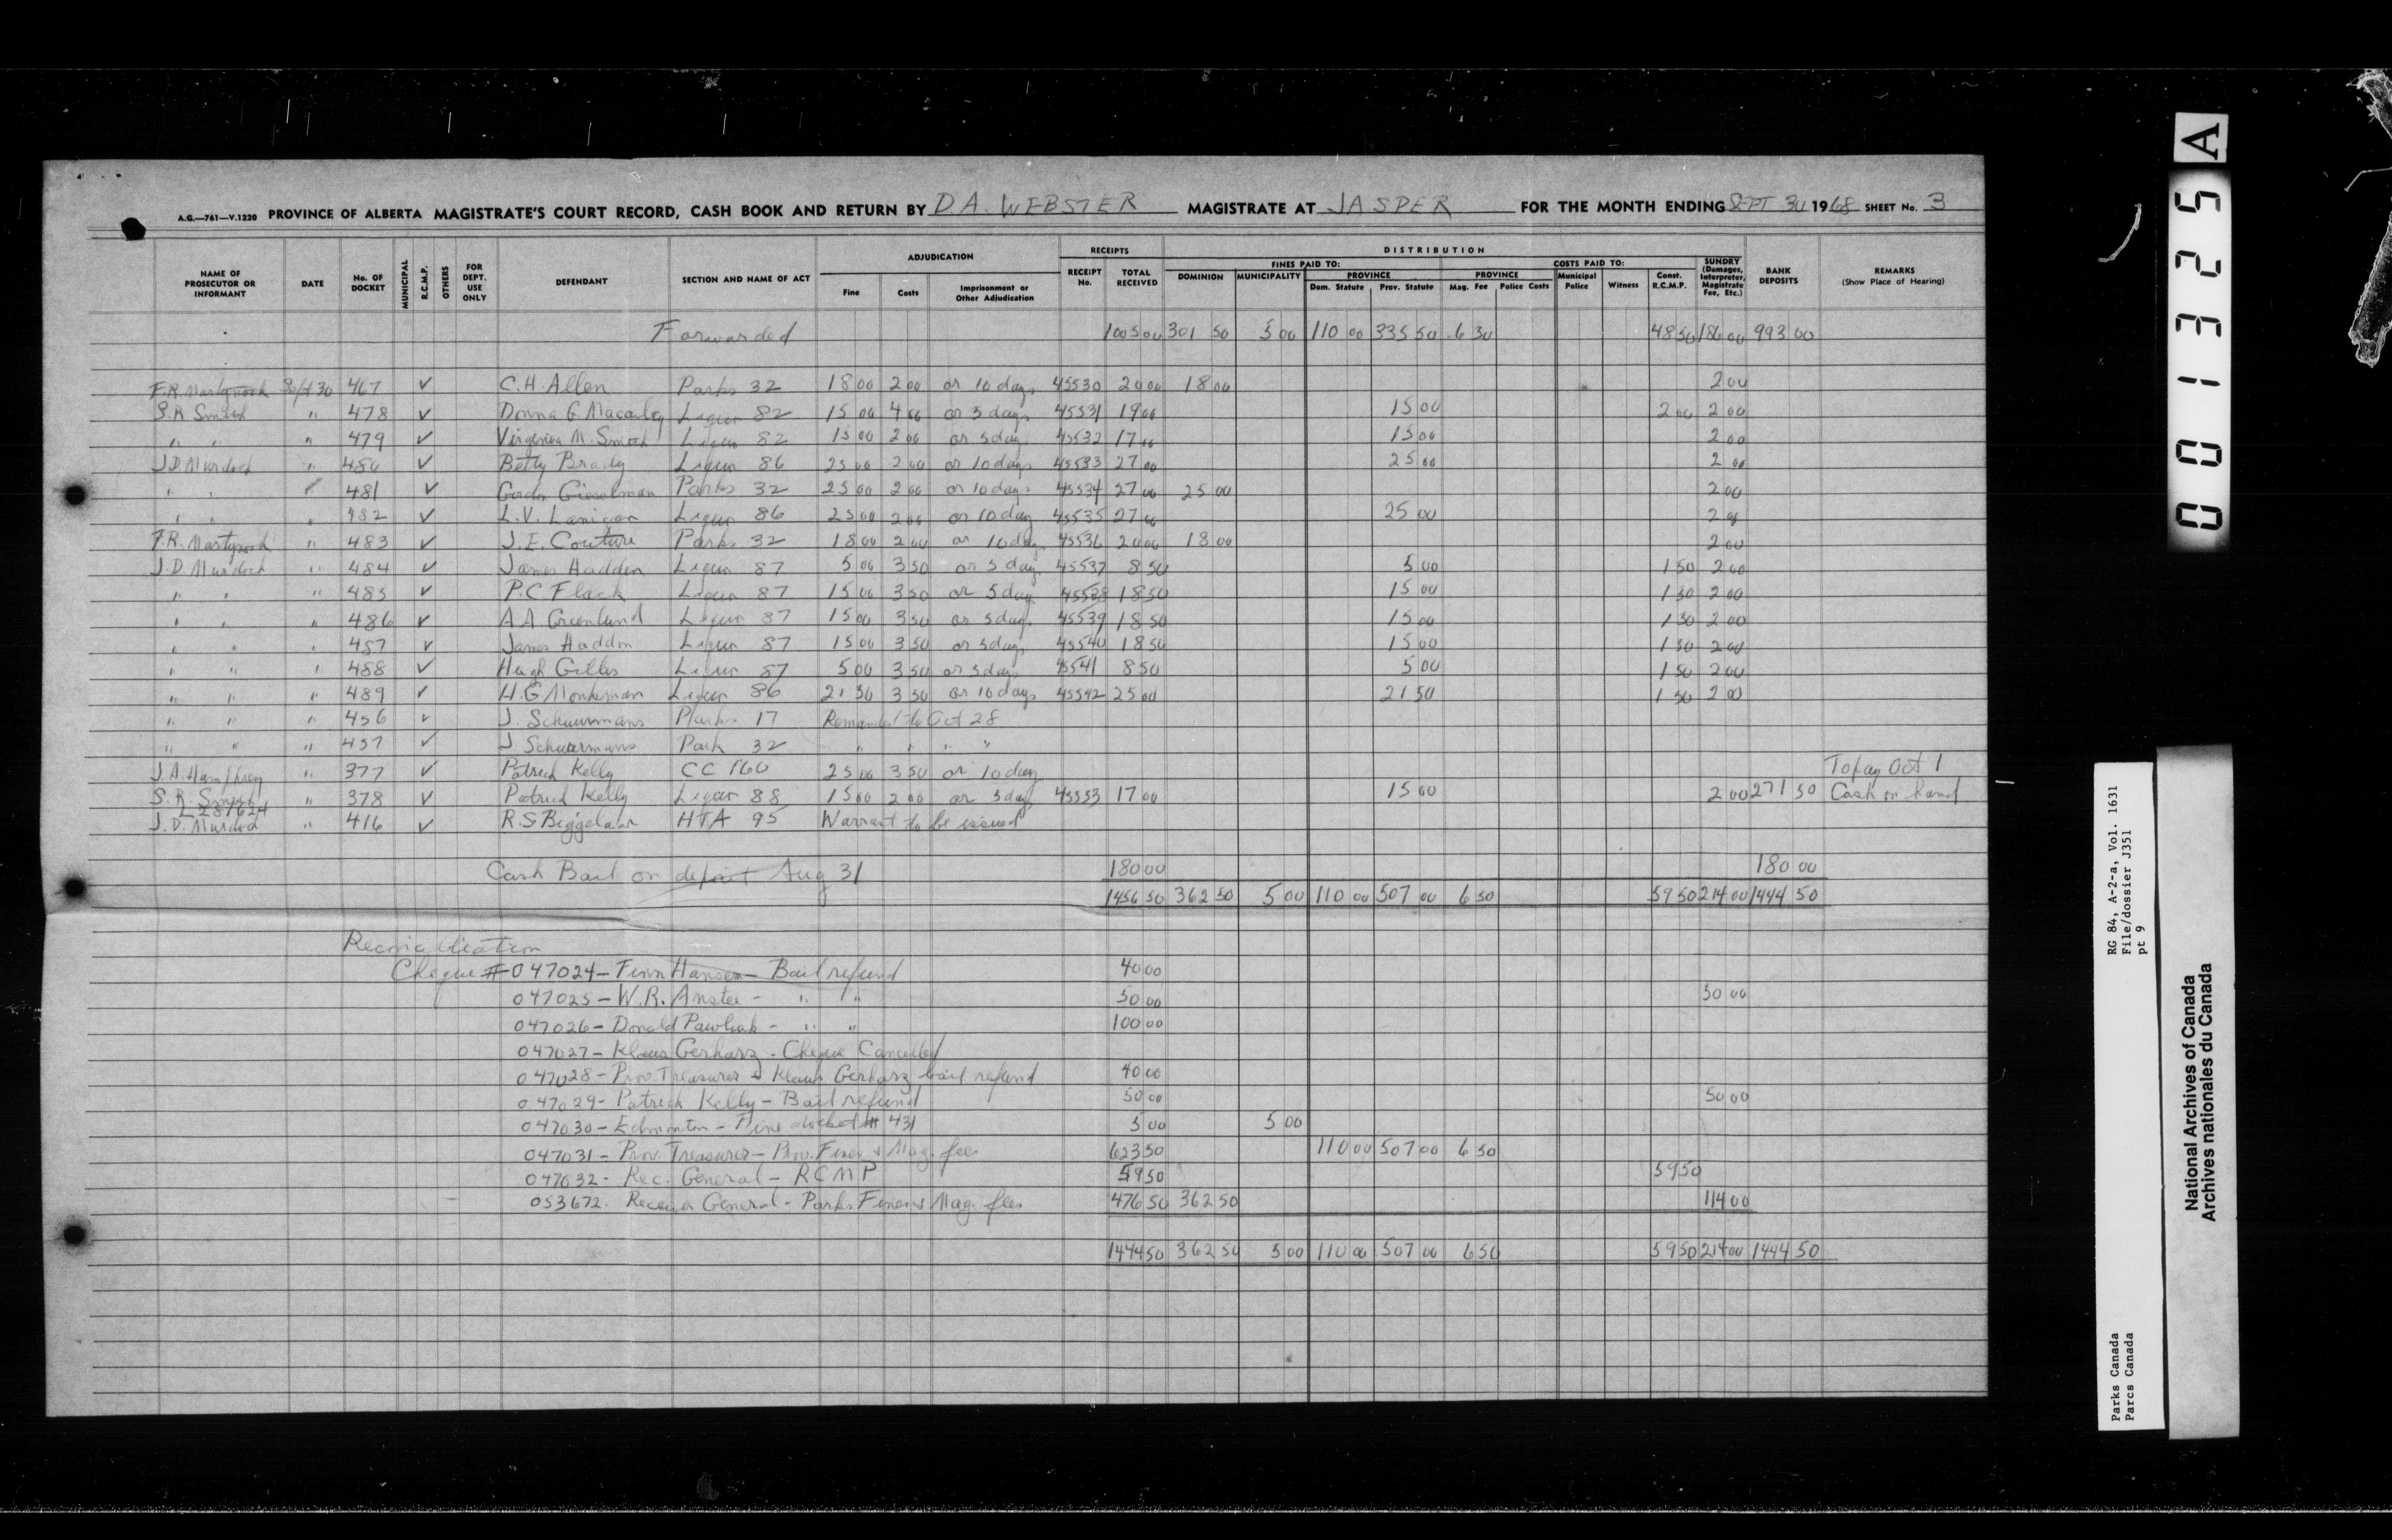 A.G.—761—V.1220 PROVINCE OF ALBERTA MAGISTRATE'S COURT RECORD, CASH BOOK AND RETURN BY D.A. WEBSTER MAGISTRATE AT JASPER FOR THE MONTH ENDING SEPT 30 1968 SHEET No. 3
NAME OF PROSECUTOR OR INFORMANT DATE No. OF DOCKET MUNICIPAL R.C.M.P. OTHERS FOR DEPT. USE ONLY DEFENDANT SECTION AND NAME OF ACT ADJUDICATION Fine Costs Imprisonment or Other Adjudication RECEIPTS RECEIPT No. TOTAL RECEIVED DISTRIBUTION FINES PAID TO: DOMINION MUNICIPALITY PROVINCE Dom. Statute Prov. Statute COSTS PAID TO: PROVINCE Mag. Fee Police Costs Municipal Police Witness Const. R.C.M.P. SUNDRY (Damages, Interpreter, Magistrate Fee, Etc.) BANK DEPOSITS REMARKS (Show Place of Hearing)
Forwarded 1005 00 301 50 5 00 110 00 335 50 6 50 48 50 186 00 993 00
F.R. Martynook Sept 30 467 ✓ C.H. Allen Parks 32 18 00 2 00 or 10 days 45530 20 00 18 00 2 00
S.R. Smith " 478 ✓ Donna G. Macauley Liquor 82 15 00 4 00 or 5 days 45531 19 00 15 00 2 00 2 00
" " " 479 ✓ Virginia M. Smith Liquor 82 15 00 2 00 or 5 day 45532 17 00 15 00 2 00
J.D. Murdoch " 480 ✓ Betty Brady Liquor 86 25 00 2 00 or 10 days 45533 27 00 25 00 2 00
" " " 481 ✓ Gordon Gieselman Parks 32 25 00 2 00 or 10 days 45534 27 00 25 00 2 00
" " " 482 ✓ L.V. Lanigan Liquor 86 25 00 2 00 or 10 day 45535 27 00 25 00 2 00
F.R. Martynook " 483 ✓ J.E. Couture Parks 32 18 00 2 00 or 10 day 45536 20 00 18 00 2 00
J.D. Murdoch " 484 ✓ James Hadden Liquor 87 5 00 3 50 or 5 day 45537 8 50 5 00 1 50 2 00
" " " 485 ✓ P.C. Flack Liquor 87 15 00 3 50 or 5 day 45538 18 50 15 00 1 50 2 00
" " " 486 ✓ A A Greenlund Liquor 87 15 00 3 50 or 5 day 45539 18 50 15 00 1 50 2 00
" " " 487 ✓ James Haddon Liquor 87 15 00 3 50 or 5 days 45540 18 50 15 00 1 50 2 00
" " " 488 ✓ Hugh Gillis Liquor 87 5 00 3 50 or 5 days 45541 8 50 5 00 1 50 2 00
" " " 489 ✓ H.G Monkman Liquor 86 21 50 3 50 or 10 days 45542 25 00 21 50 1 50 2 00
" " " 456 ✓ J. Schuurmans Parks 17 Remanded to Oct 28
" " " 457 ✓ J Schuurmans Park 32 " " " "
J.A. Humphrey " 377 ✓ Patrick Kelly CC 160 25 00 3 50 or 10 day To pay Oct 1
S.R. Smith " 378 ✓ Patrick Kelly Liquor 88 15 00 2 00 or 5 days 45553 17 00 15 00 2 00 271 50 Cash on hand
L281624
J.D. Murdoch " 416 ✓ R.S. Biggelaar HTA 95 Warrant to be issued
Cash Bail on deposit Aug 31 180 00 180 00
1456 50 362 50 5 00 110 00 507 00 6 50 59 50 214 00 1444 50
Reconciliation
Cheque # 047024 - Finn Hansen - Bail refund 40 00
047025 - W.R. Anstee - " " 50 00 50 00
047026 - Donald Pawliak - " " 100 00
047027 - Klaus Gerharz - Cheque Cancelled
047028 - Prov. Treasurer & Klaus Gerharz bail refund 40 00
047029 - Patrick Kelly - Bail refund 50 00 50 00
047030 - Edmonton - Fine docket # 431 5 00 5 00
047031 - Prov. Treasurer - Prov. Fines & Mag. fees 623 50 110 00 507 00 6 50
047032 - Rec. General - RCMP 59 50 59 50
053672. Receiver General - Parks Fines & Mag. fees 476 50 362 50 114 00
1444 50 362 50 5 00 110 00 507 00 6 50 59 50 214 00 1444 50
001325 A
RG 84, A-2-a, Vol. 1631
File/dossier J351
pt 9
Parks Canada
Parcs Canada
National Archives of Canada
Archives nationales du Canada